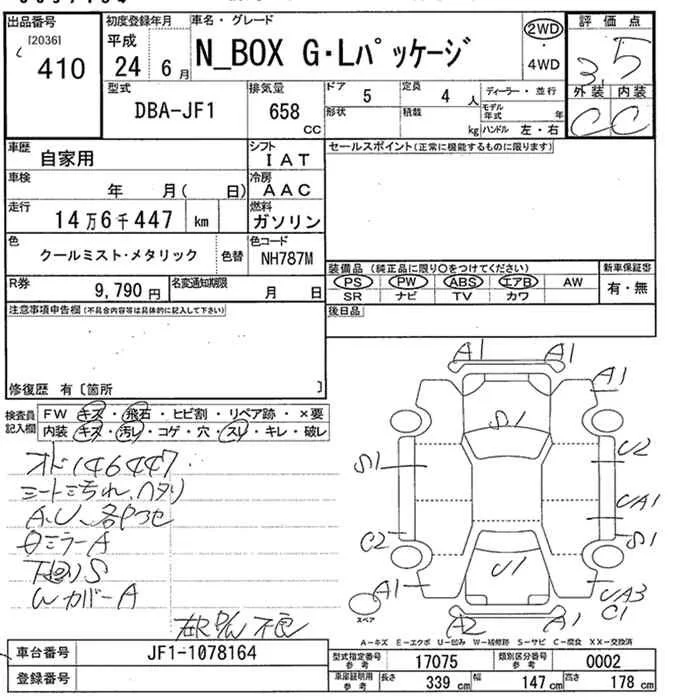 出品番号
[2036]
410
初度登録年月
平成
24 6 月
車名・グレード
N_BOX G・Lパッケージ
2WD
・
4WD
評価点
3.5
外装 内装
C C
型式
DBA-JF1
排気量
658
cc
ドア
5
定員
4 人
形状
積載
kg
ディーラー・並行
モデル年式 年
ハンドル 左・右
車歴
自家用
シフト
IAT
セールスポイント(正常に機能するものに限ります)
車検
年 月( 日)
冷房
AAC
走行
14万6千447 km
燃料
ガソリン
色
クールミスト・メタリック
色替
色コード
NH787M
装備品 (純正品に限り○をつけてください)
新車保証書
PS PW ABS エアB AW
有・無
SR ナビ TV カワ
R券
9,790 円
名変通知期限
月 日
後日品
注意事項申告欄(不具合内容等は具体的に記入して下さい)
修復歴 有 [箇所 ]
検査員
記入欄
FW キズ・飛石・ヒビ割・リペア跡・×要
内装 キズ・汚レ・コゲ・穴・スレ・キレ・破レ
オド146447
シートミぢれ、ヘタリ
A、U、各ヤツセ
ミラーA
下廻りS
WカバーA
不良
A1 A1
A1
S1
S1
U2
UA1
S1
C2
U1
A1
UA3
C1
A2 A1
スペア
A-キズ E-エクボ U-凹み W-補修跡 S-サビ C-腐食 XX-交換済
車台番号
JF1-1078164
登録番号
型式指定番号
参考
17075
類別区分番号
参考
0002
車庫証明用
参考
長さ 339 cm 幅 147 cm 高さ 178 cm